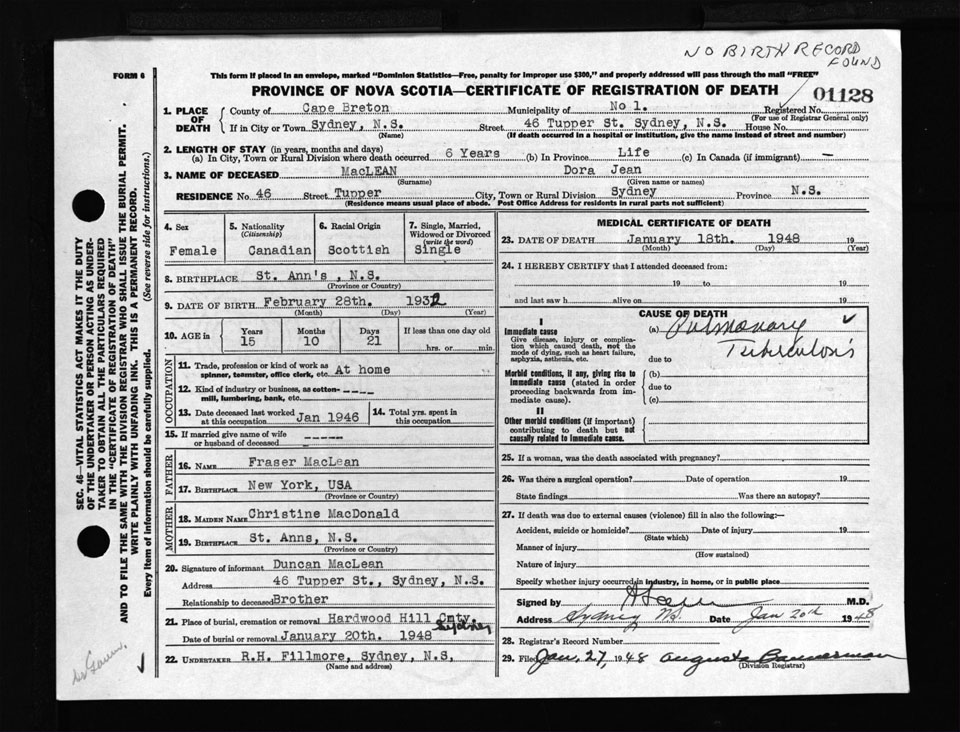 NO BIRTH RECORD
FOUND
FORM 6
This form if placed in an envelope, marked "Dominion Statistics—Free, penalty for improper use $300," and properly addressed will pass through the mail "FREE"
PROVINCE OF NOVA SCOTIA—CERTIFICATE OF REGISTRATION OF DEATH
01128
1. PLACE OF DEATH County of Cape Breton Municipality of No 1. Registered No.
(For use of Registrar General only)
If in City or Town Sydney, N.S. Street 46 Tupper St. Sydney, N.S. House No.
(Name) (If death occurred in a hospital or institution, give the name instead of street and number)
2. LENGTH OF STAY (in years, months and days)
(a) In City, Town or Rural Division where death occurred 6 Years (b) In Province Life (c) In Canada (if immigrant) —
3. NAME OF DECEASED MacLEAN Dora Jean
(Surname) (Given name or names)
RESIDENCE No. 46 Street Tupper City, Town or Rural Division Sydney Province N.S.
(Residence means usual place of abode. Post Office Address for residents in rural parts not sufficient)
4. Sex
Female
5. Nationality
(Citizenship)
Canadian
6. Racial Origin
Scottish
7. Single, Married,
Widowed or Divorced
(write the word)
Single
8. BIRTHPLACE St. Ann's , N.S.
(Province or Country)
9. DATE OF BIRTH February 28th. 1932
(Month) (Day) (Year)
10. AGE in Years Months Days If less than one day old
15 10 21 hrs. or min.
OCCUPATION
11. Trade, profession or kind of work as
spinner, teamster, office clerk, etc. At home
12. Kind of industry or business, as cotton-
mill, lumbering, bank, etc. ----
13. Date deceased last worked
at this occupation Jan 1946
14. Total yrs. spent in
this occupation
15. If married give name of wife
or husband of deceased -----
FATHER
16. NAME Fraser MacLean
17. BIRTHPLACE New York, USA
(Province or Country)
MOTHER
18. MAIDEN NAME Christine MacDonald
19. BIRTHPLACE St. Anns, N.S.
(Province or Country)
20. Signature of informant Duncan MacLean
Address 46 Tupper St., Sydney, N.S.
Relationship to deceased Brother
21. Place of burial, cremation or removal Hardwood Hill Cmty
Sydney
Date of burial or removal January 20th. 1948
22. UNDERTAKER R.H. Fillmore, Sydney, N.S,
(Name and address)
MEDICAL CERTIFICATE OF DEATH
23. DATE OF DEATH January 18th. 1948 19
(Month) (Day) (Year)
24. I HEREBY CERTIFY that I attended deceased from:
19 to 19
and last saw h alive on 19
CAUSE OF DEATH
I
Immediate cause
Give disease, injury or complica-
tion which caused death, not the
mode of dying, such as heart failure,
asphyxia, asthenia, etc.
(a) Pulmonary ✓
Tuberculosis
due to
Morbid conditions, if any, giving rise to
immediate cause (stated in order
proceeding backwards from im-
mediate cause).
(b)
due to
(c)
II
Other morbid conditions (if important)
contributing to death but not
causally related to immediate cause.
25. If a woman, was the death associated with pregnancy?
26. Was there a surgical operation? Date of operation 19
State findings Was there an autopsy?
27. If death was due to external causes (violence) fill in also the following:—
Accident, suicide or homicide? Date of injury 19
(State which)
Manner of injury
(How sustained)
Nature of injury
Specify whether injury occurred in industry, in home, or in public place
Signed by M.D.
Address Sydney NS. Date Jan 20th 1948
28. Registrar's Record Number
29. Filed Jan. 27 1948 Augusta Bannerman
(Division Registrar)
SEC. 46—VITAL STATISTICS ACT MAKES IT THE DUTY
OF THE UNDERTAKER OR PERSON ACTING AS UNDER-
TAKER TO OBTAIN ALL THE PARTICULARS REQUIRED
IN THE "CERTIFICATE OF REGISTRATION OF DEATH"
AND TO FILE THE SAME WITH THE DIVISION REGISTRAR WHO SHALL ISSUE THE BURIAL PERMIT.
WRITE PLAINLY WITH UNFADING INK. THIS IS A PERMANENT RECORD.
Every item of information should be carefully supplied. (See reverse side for instructions.)